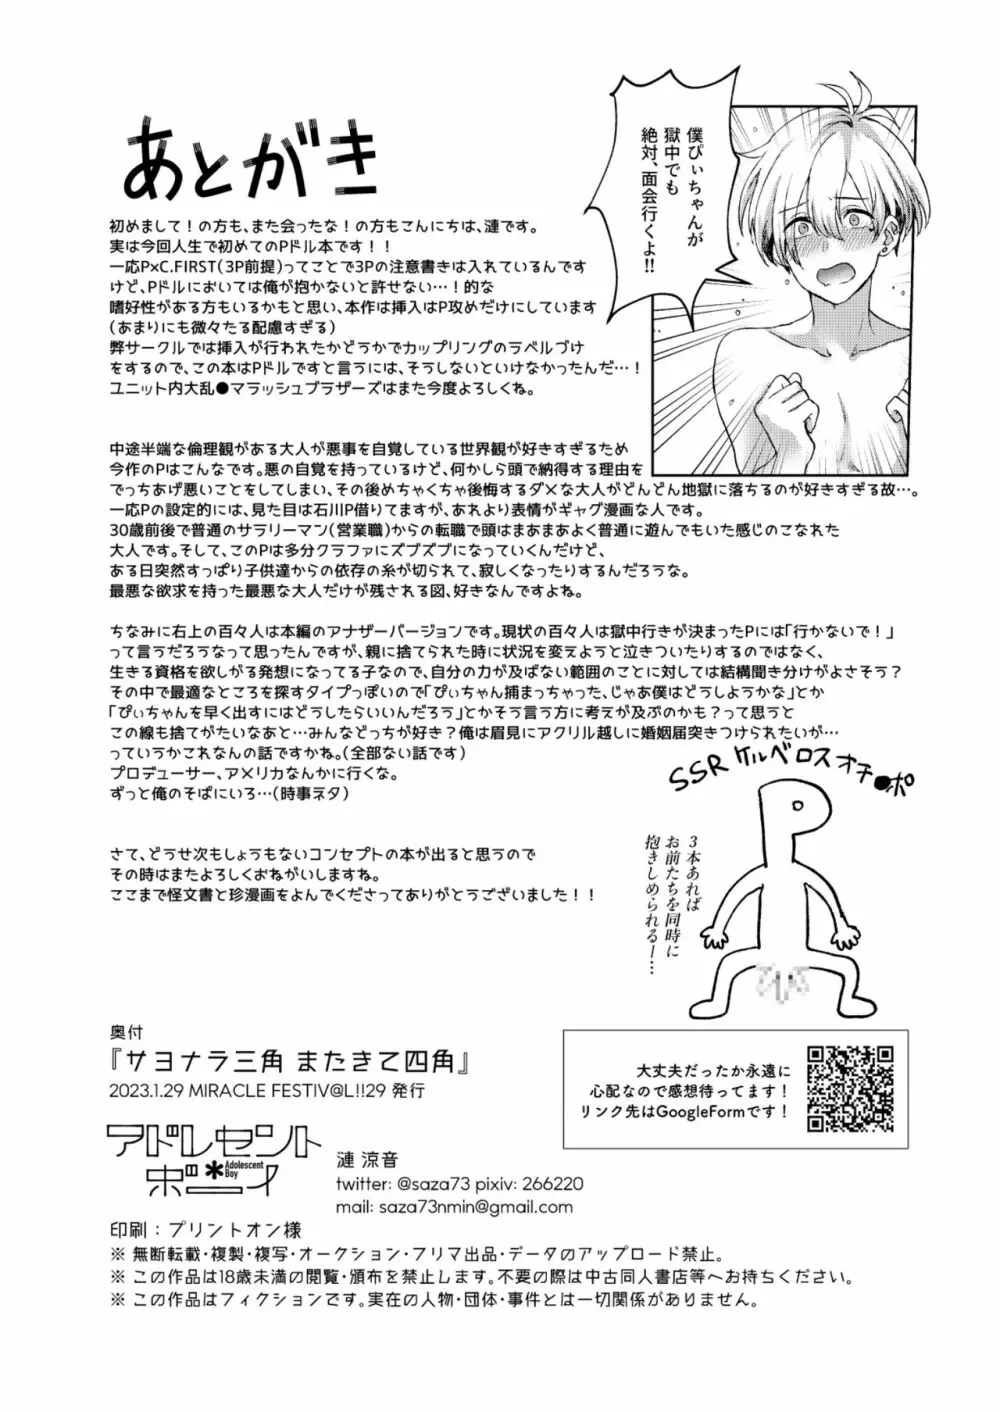 あとがき
僕ぴぃちゃんが
獄中でも
絶対、面会行くよ!!
初めまして！の方も、また会ったな！の方もこんにちは、漣です。
実は今回人生で初めてのPドル本です！！
一応P×C.FIRST(3P前提)ってことで3Pの注意書きは入れているんです
けど、Pドルにおいては俺が抱かないと許せない…！的な
嗜好性がある方もいるかもと思い、本作は挿入はP攻めだけにしています
(あまりにも微々たる配慮すぎる)
弊サークルでは挿入が行われたかどうかでカップリングのラベルづけ
をするので、この本はPドルですと言うには、そうしないといけなかったんだ…！
ユニット内大乱●マラッシュブラザーズはまた今度よろしくね。
中途半端な倫理観がある大人が悪事を自覚している世界観が好きすぎるため
今作のPはこんなです。悪の自覚を持っているけど、何かしら頭で納得する理由を
でっちあげ悪いことをしてしまい、その後めちゃくちゃ後悔するダメな大人がどんどん地獄に落ちるのが好きすぎる故…。
一応Pの設定的には、見た目は石川P借りてますが、あれより表情がギャグ漫画な人です。
30歳前後で普通のサラリーマン(営業職)からの転職で頭はまあまあよく普通に遊んでもいた感じのこなれた
大人です。そして、このPは多分クラファにズブズブになっていくんだけど、
ある日突然すっぱり子供達からの依存の糸が切られて、寂しくなったりするんだろうな。
最悪な欲求を持った最悪な大人だけが残される図、好きなんですよね。
ちなみに右上の百々人は本編のアナザーバージョンです。現状の百々人は獄中行きが決まったPには「行かないで！」
って言うだろうなって思ったんですが、親に捨てられた時に状況を変えようと泣きついたりするのではなく、
生きる資格を欲しがる発想になってる子なので、自分の力が及ばない範囲のことに対しては結構聞き分けがよさそう？
その中で最適なところを探すタイプっぽいので「ぴぃちゃん捕まっちゃった、じゃあ僕はどうしようかな」とか
「ぴぃちゃんを早く出すにはどうしたらいいんだろう」とかそう言う方に考えが及ぶのかも？って思うと
この線も捨てがたいなあと…みんなどっちが好き？俺は眉見にアクリル越しに婚姻届突きつけられたいが…
っていうかこれなんの話ですかね。(全部ない話です)
プロデューサー、アメリカなんかに行くな。
ずっと俺のそばにいろ…(時事ネタ)
SSRケルベロスオチ●ポ
P
3本あれば
お前たちを同時に
抱きしめられるー…
さて、どうせ次もしょうもないコンセプトの本が出ると思うので
その時はまたよろしくおねがいしますね。
ここまで怪文書と珍漫画をよんでくださってありがとうございました！！
奥付
『サヨナラ三角 またきて四角』
2023.1.29 MIRACLE FESTIV@L!!29 発行
アドレセント
ボーイ
Adolescent
Boy
漣 涼音
twitter: @saza73 pixiv: 266220
mail: saza73nmin@gmail.com
大丈夫だったか永遠に
心配なので感想待ってます！
リンク先はGoogleFormです！
印刷：プリントオン様
※ 無断転載・複製・複写・オークション・フリマ出品・データのアップロード禁止。
※ この作品は18歳未満の閲覧・頒布を禁止します。不要の際は中古同人書店等へお持ちください。
※ この作品はフィクションです。実在の人物・団体・事件とは一切関係がありません。